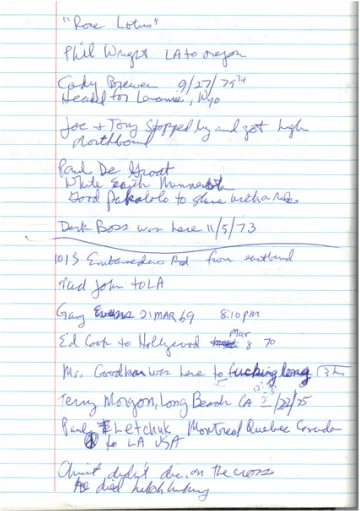 "Rose Lotus"
Phil Wright LA to oregon
Cody Brewer 9/27/75
Headed for Laramie, Wyo
Joe + Tony Stopped by and got high
Northbound
Paul De Groat
White Earth Minnesota
Good Pakalolo to share with
Derk Boss was here 11/5/73
1015 Embarcadero Rd from eastbound
Ted John to LA
Gary Evans 21 MAR 69 8:10 pm
Ed Cook to Hollywood Mar 8 70
Mr. Goodbar was here to fucking long 3 hrs
Terry Morgon, Long Beach CA /22/75
Letchuk, Montreal Quebec Canada
to LA USA
Christ didn't die, on the cross
He died hitchhiking